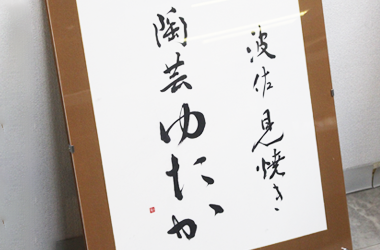 波佐見焼き
陶芸ゆたか